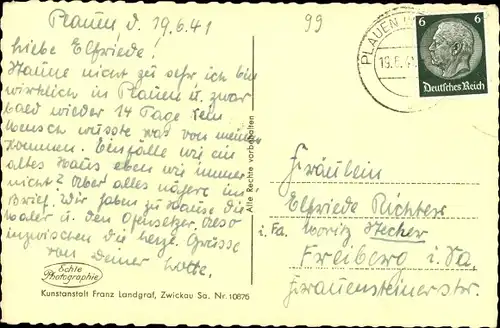 Plauen d. 19.6.41
99
liebe Elfriede!
Staune nicht zu sehr ich bin
wirklich in Plauen u. zwar
bald wieder 14 Tage kein
Mensch wusste was von meinem
Kommen. Einfälle wie ein
altes Haus eben wie immer
nicht? Aber alles nähere im
Brief. Wir haben zu Hause die
Maler u. den Ofensetzer. Also
inzwischen die herzl. Grüsse
von Deiner Lotte.
Echte
Photographie
Kunstanstalt Franz Landgraf, Zwickau Sa. Nr. 10876
Alle Rechte vorbehalten
PLAUEN
19.6.41
6 6
Deutsches Reich
Fräulein
Elfriede Richter
i. Fa. Moritz Stecher
Freiberg i. Sa.
Frauensteinerstr.